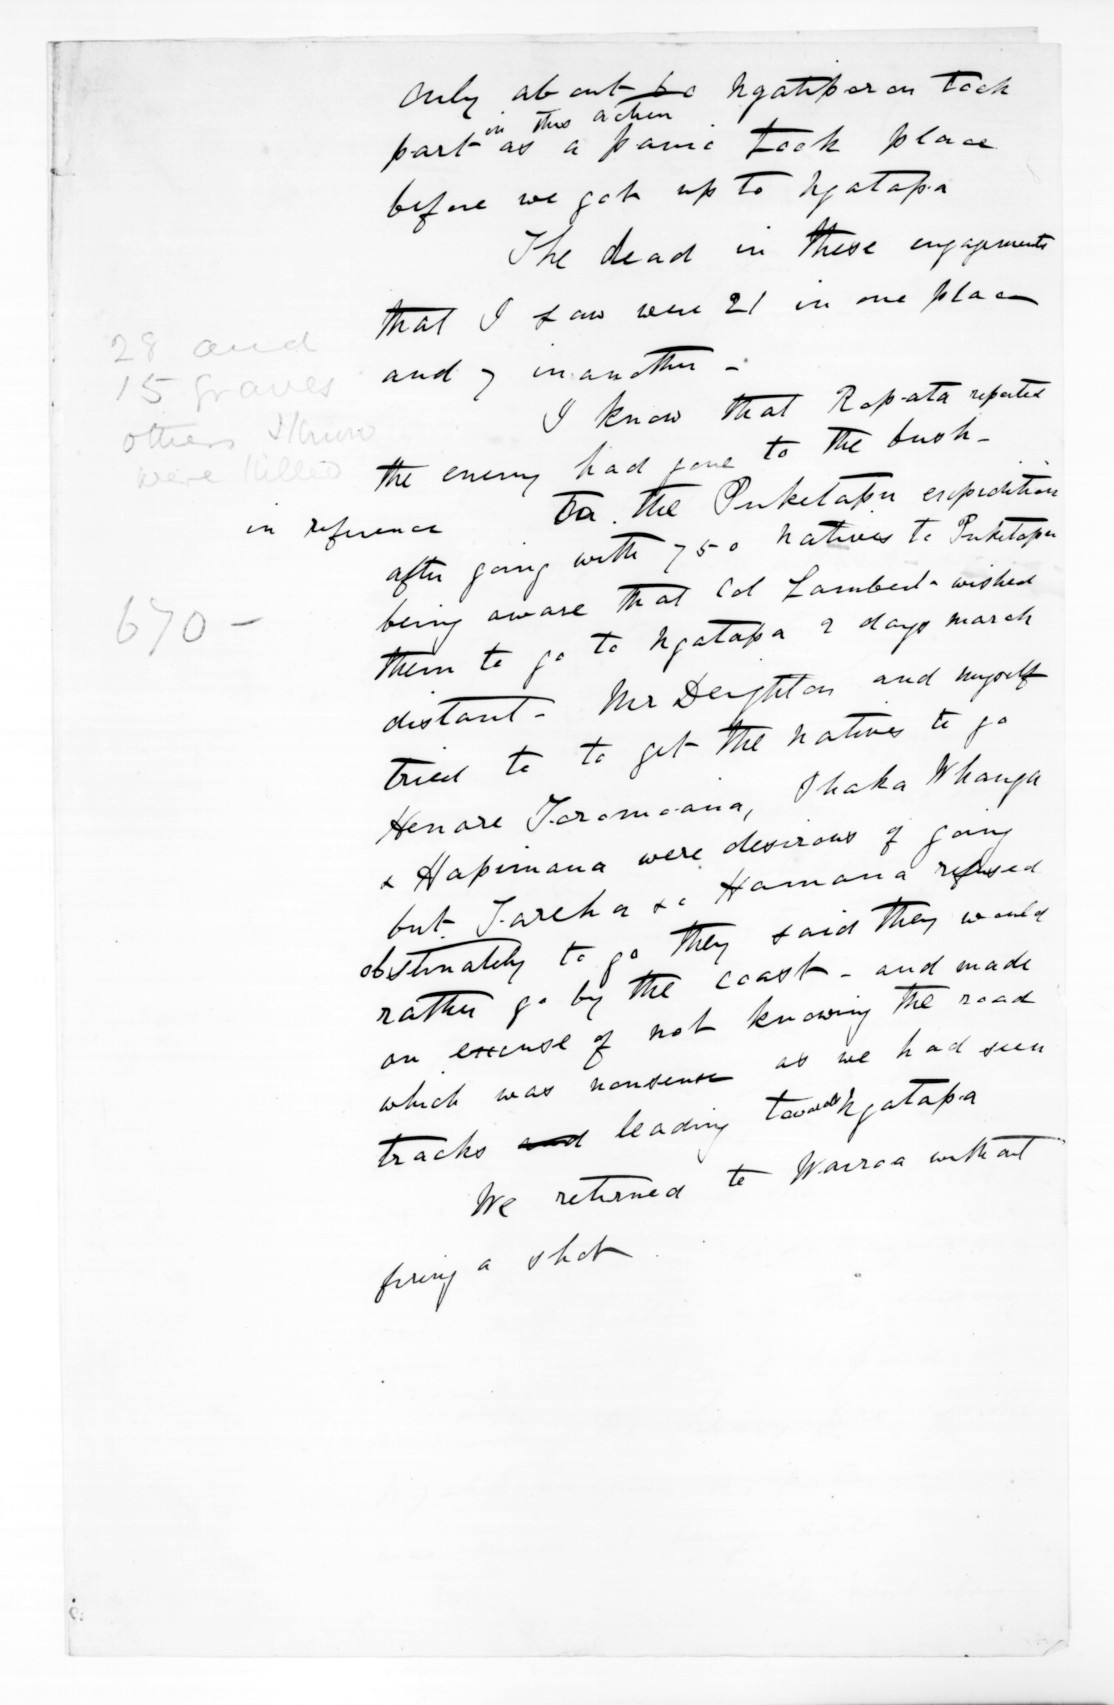 only about 60 Ngatiporou took
in this action
part as a panic took place
before we got up to Ngatapa
The dead in these engagements
that I saw were 21 in one place
and 7 in another -
28 and
15 graves
others I know
were killed
I know that Ropata reported
the enemy had gone to the bush -
in reference To the Puketapu expedition
after going with 750 Natives to Puketapu
670 -
being aware that Col Lambert wished
them to go to Ngatapa 2 days march
distant - Mr Deighton and myself
tried to to get the Natives to go
Henare Toromoana, Ihaka Whanga
& Hapimana were desirous of going
but Tareha &c Hamana refused
obstinately to go they said they would
rather go by the coast - and made
an excuse of not knowing the road
which was nonsense as we had seen
tracks and leading towards Ngatapa
We returned to Wairoa without
firing a shot